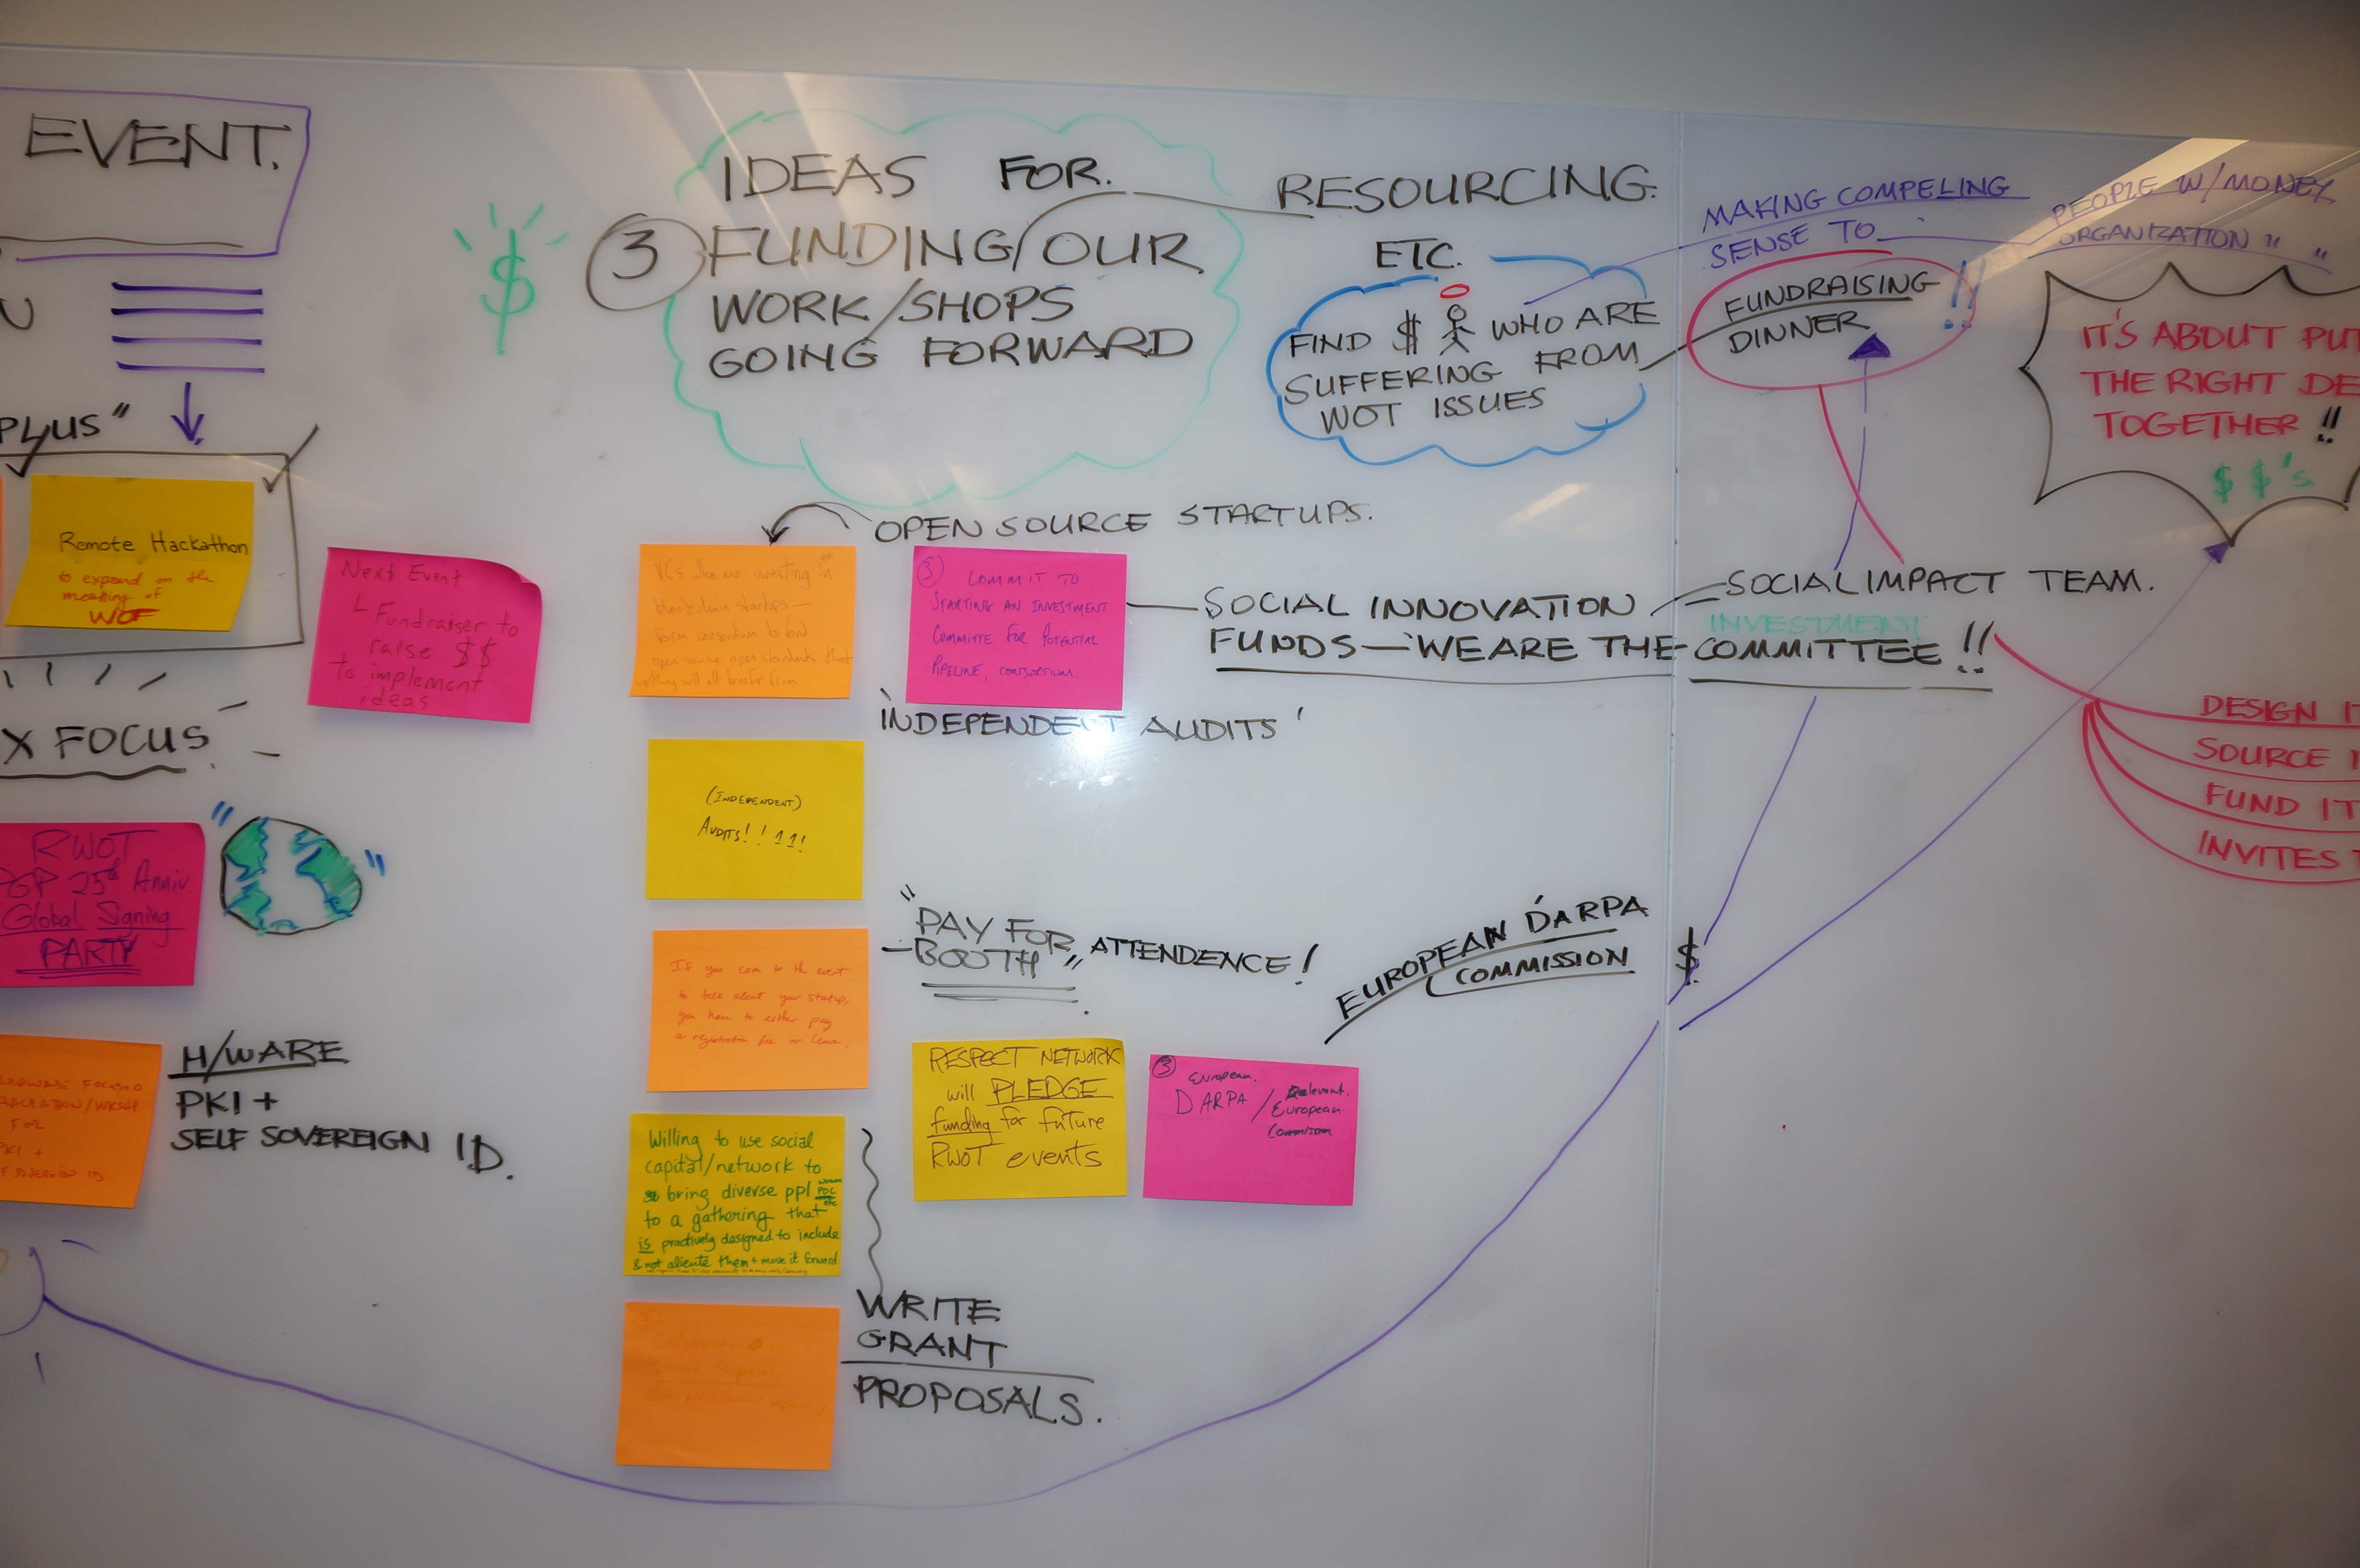 EVENT.
PLUS"
Remote Hackathon
to expand on the
meaning of
WOT
Next Event
Fundraiser to
raise $$
to implement
ideas
X FOCUS
RWOT
PGP 25th Anniv.
Global Signing
PARTY
H/WARE
PKI +
SELF SOVEREIGN ID.
HACKATHON/WKSHP
FOR
PKI +
$
IDEAS FOR.
3 FUNDING/OUR
WORK/SHOPS
GOING FORWARD
RESOURCING.
ETC.
FIND $ WHO ARE
SUFFERING FROM
WOT ISSUES
MAKING COMPELING
SENSE TO
PEOPLE W/MONEY
ORGANIZATION " "
FUNDRAISING !!
DINNER
IT'S ABOUT PUT
THE RIGHT DE
TOGETHER !!
$ $'s
OPEN SOURCE STARTUPS.
VCs who are investing in
blockchain startups —
form consortium to fund
open source open standards that
they will all benefit from
3 COMMIT TO
STARTING AN INVESTMENT
COMMITTE FOR POTENTIAL
PIPELINE, CONSORTIUM.
SOCIAL INNOVATION
FUNDS — WE ARE THE
SOCIAL IMPACT TEAM.
INVESTMENT
COMMITTEE !!
DESIGN IT
SOURCE I
FUND IT
INVITES T
'INDEPENDENT AUDITS'
(INDEPENDENT)
AUDITS! ! 1 1!
If you come to the event
to talk about your startup,
you have to either pay
a registration fee or leave.
"PAY FOR
— BOOTH" ATTENDENCE!
EUROPEAN DARPA
COMMISSION
$
RESPECT NETWORK
will PLEDGE
funding for future
RWoT events
3 European.
DARPA / Relevant.
European
Commission
Willing to use social
capital/network to
bring diverse ppl women POC etc
to a gathering that
is practively designed to include
& not alienate them + move it forward
WRITE
GRANT
PROPOSALS.